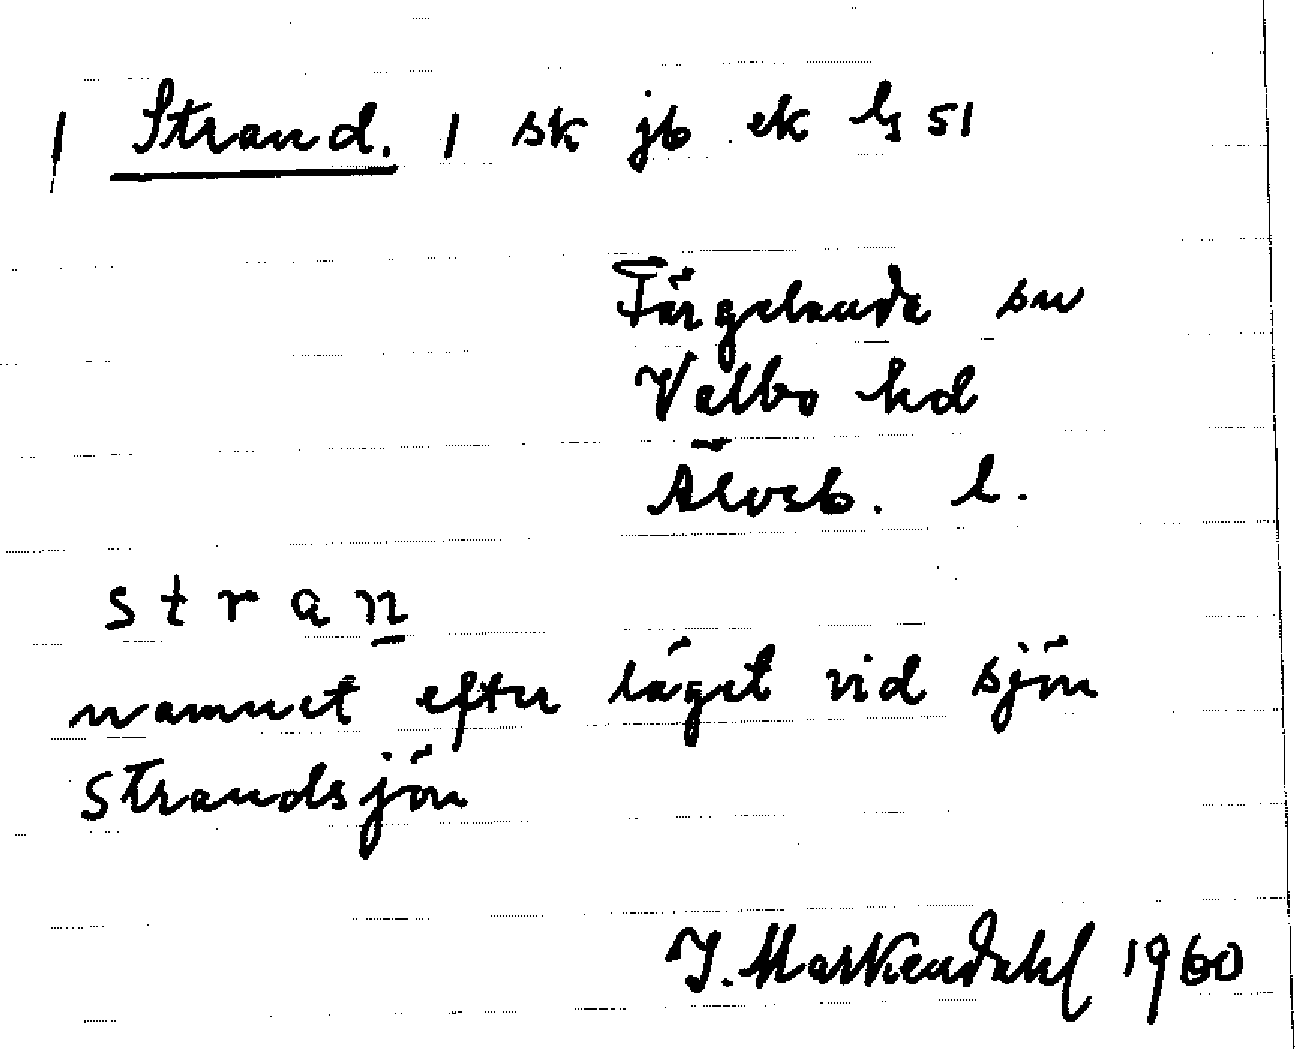 | Strand. 1 sk jb ek bl 51
Färgelanda sn
Valbo hd
Älvsb. l.
stran
namnet efter läget vid sjön
Strandsjön
J. Markendahl 1960